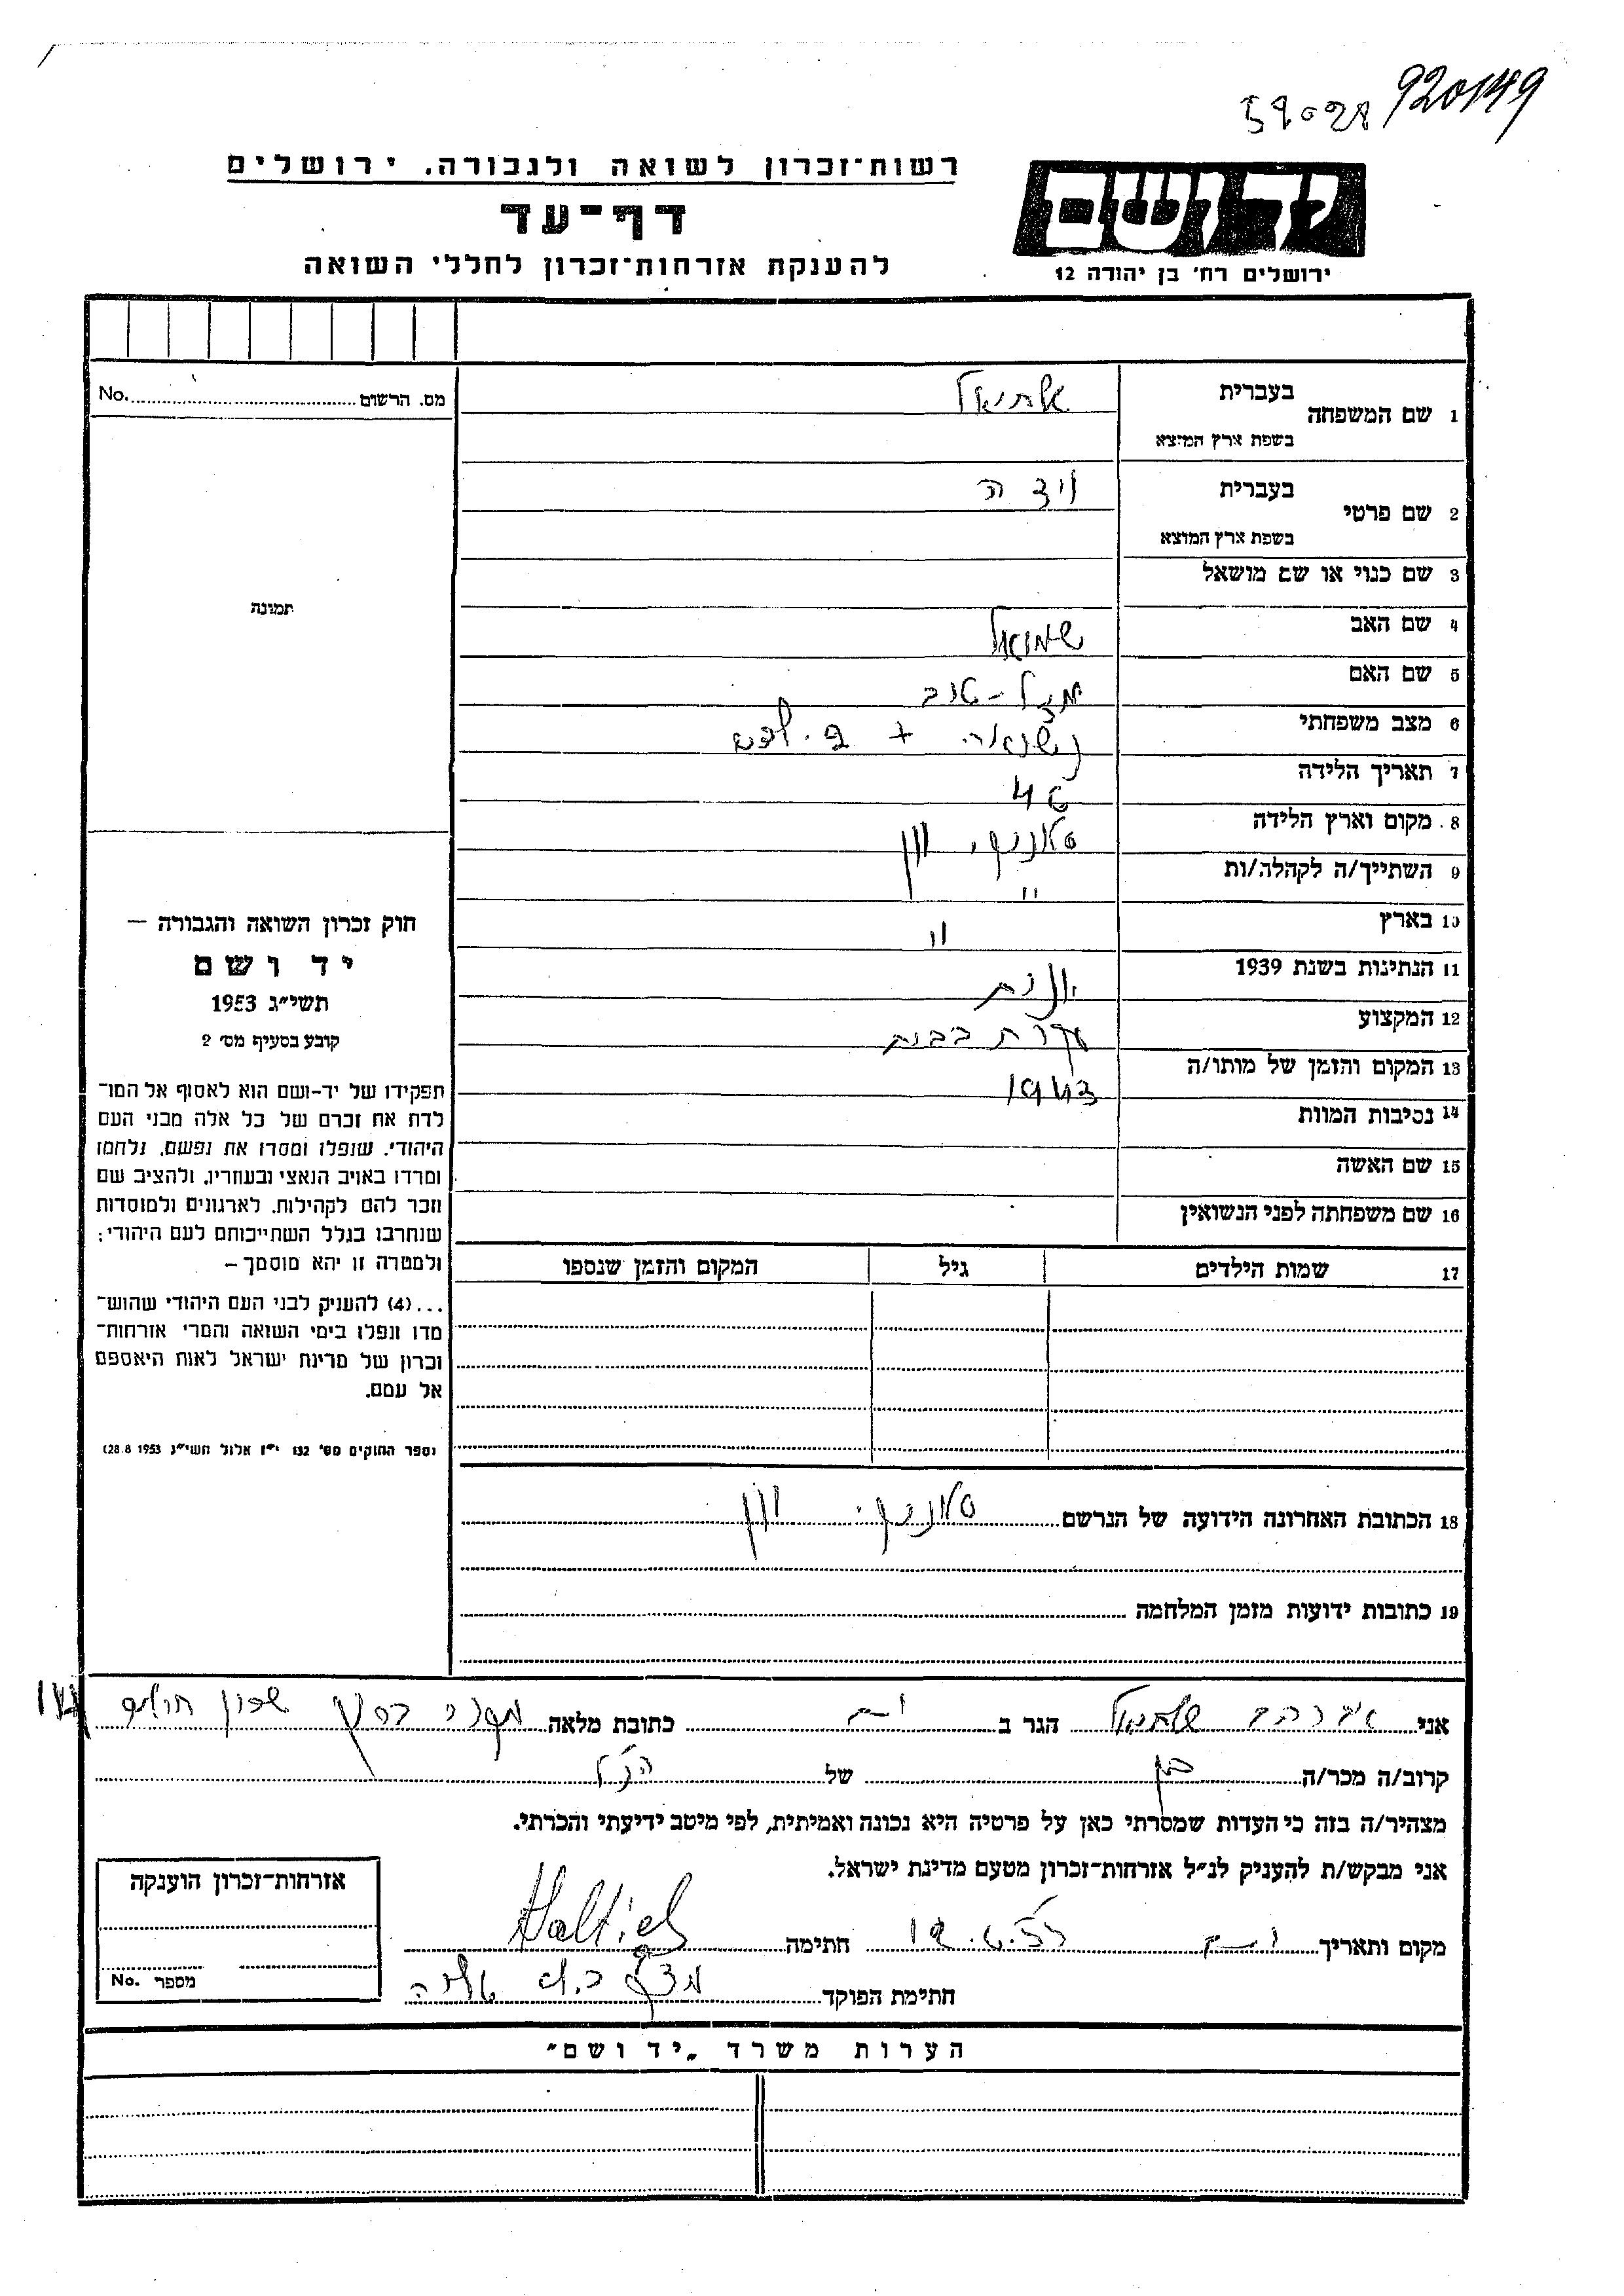 920149
59028
רשות־זכרון לשואה ולגבורה. ירושלים
יד ושם
דף־עד
להענקת אזרחות־זכרון לחללי השואה
ירושלים רח׳ בן יהודה 12
מס. הרשום No.
1 שם המשפחה בעברית
בשפת ארץ המוצא
2 שם פרטי בעברית וידה
בשפת ארץ המוצא
3 שם כנוי או שם מושאל
4 שם האב שמואל
5 שם האם מזל-טוב
6 מצב משפחתי נשואה +
7 תאריך הלידה
8. מקום וארץ הלידה סלוניקי, יוון
9 השתייך/ה לקהלה/ות "
10 בארץ "
11 הנתינות בשנת 1939 יוונית
12 המקצוע עקרת בבית
13 המקום והזמן של מותו/ה 1943
14 נסיבות המוות
15 שם האשה
16 שם משפחתה לפני הנשואין
17 שמות הילדים גיל המקום והזמן שנספו
18 הכתובת האחרונה הידועה של הנרשם סלוניקי. יוון
19 כתובות ידועות מזמן המלחמה
תמונה
חוק זכרון השואה והגבורה –
יד ושם
תשי״ג 1953
קובע בסעיף מס׳ 2
תפקידו של יד-ושם הוא לאסוף אל המו־
לדת את זכרם של כל אלה מבני העם
היהודי, שנפלו ומסרו את נפשם, נלחמו
ומרדו באויב הנאצי ובעוזריו, ולהציב שם
וזכר להם לקהילות, לארגונים ולמוסדות
שנחרבו בגלל השתייכותם לעם היהודי;
ולמטרה זו יהא מוסמך –
...(4) להעניק לבני העם היהודי שהוש־
מדו ונפלו בימי השואה והמרי אזרחות־
זכרון של מדינת ישראל לאות היאספם
אל עמם.
(ספר החוקים מס׳ 132 י״ז אלול תשי״ג 28.8 1953)
אני אברהם הגר ב כתובת מלאה
קרוב/ה מכר/ה בן של הנ"ל
מצהיר/ה בזה כי העדות שמסרתי כאן על פרטיה היא נכונה ואמיתית, לפי מיטב ידיעתי והכרתי.
אני מבקש/ת להעניק לנ״ל אזרחות־זכרון מטעם מדינת ישראל.
מקום ותאריך חתימה
חתימת הפוקד
אזרחות־זכרון הוענקה
מספר No.
הערות משרד „יד ושם״